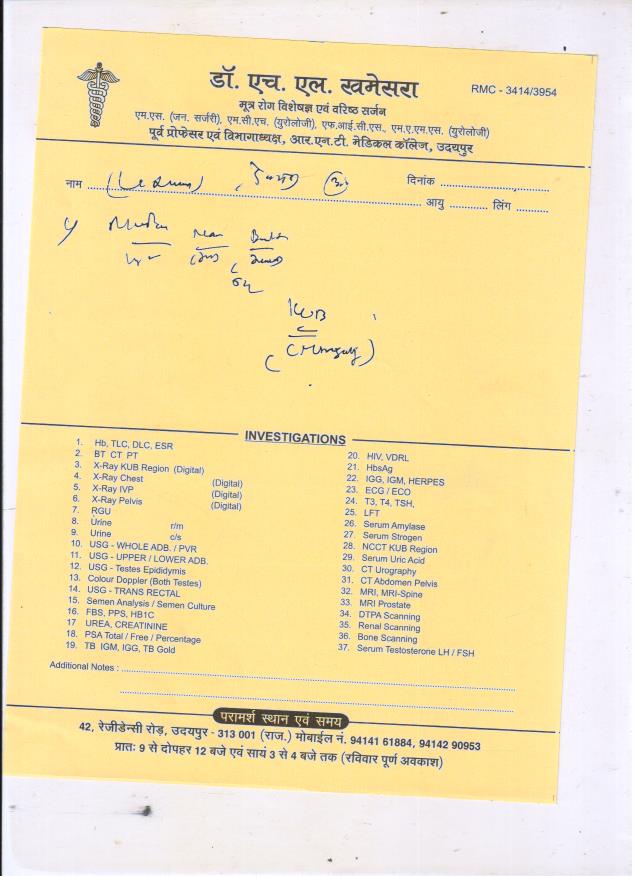 डॉ. एच. एल. खमेसरा
RMC - 3414/3954
मूत्र रोग विशेषज्ञ एवं वरिष्ठ सर्जन
एम.एस. (जन. सर्जरी), एम.सी.एच. (युरोलोजी), एफ.आई.सी.एस., एम.ए.एम.एस. (युरोलोजी)
पूर्व प्रोफेसर एवं विभागाध्यक्ष, आर.एन.टी. मेडिकल कॉलेज, उदयपुर
नाम
दिनांक
आयु लिंग
KUB
INVESTIGATIONS
1. Hb, TLC, DLC, ESR
2. BT CT PT
3. X-Ray KUB Region (Digital)
4. X-Ray Chest (Digital)
5. X-Ray IVP (Digital)
6. X-Ray Pelvis (Digital)
7. RGU
8. Urine r/m
9. Urine c/s
10. USG - WHOLE ADB. / PVR
11. USG - UPPER / LOWER ADB.
12. USG - Testes Epididymis
13. Colour Doppler (Both Testes)
14. USG - TRANS RECTAL
15. Semen Analysis / Semen Culture
16. FBS, PPS, HB1C
17 UREA, CREATININE
18. PSA Total / Free / Percentage
19. TB IGM, IGG, TB Gold
20. HIV, VDRL
21. HbsAg
22. IGG, IGM, HERPES
23. ECG / ECO
24. T3, T4, TSH,
25. LFT
26. Serum Amylase
27. Serum Strogen
28. NCCT KUB Region
29. Serum Uric Acid
30. CT Urography
31. CT Abdomen Pelvis
32. MRI, MRI-Spine
33. MRI Prostate
34. DTPA Scanning
35. Renal Scanning
36. Bone Scanning
37. Serum Testosterone LH / FSH
Additional Notes :
परामर्श स्थान एवं समय
42, रेजीडेन्सी रोड़, उदयपुर - 313 001 (राज.) मोबाईल नं. 94141 61884, 94142 90953
प्रातः 9 से दोपहर 12 बजे एवं सायं 3 से 4 बजे तक (रविवार पूर्ण अवकाश)